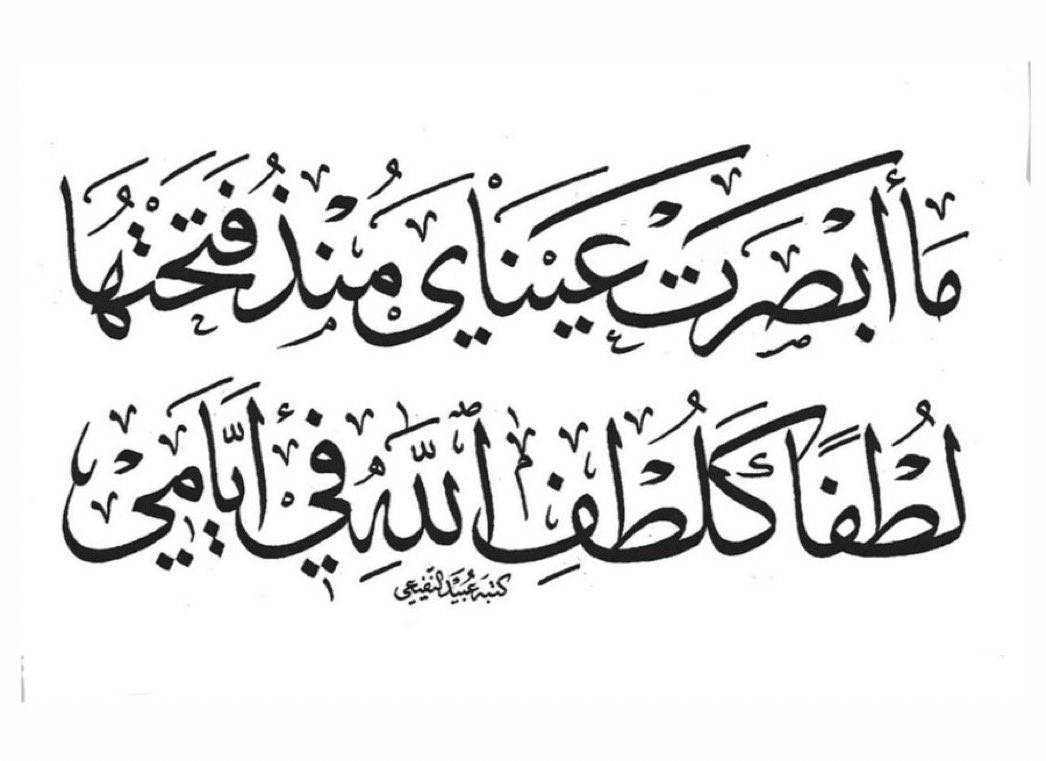 مَا أَبْصَرَتْ عَيْنَايَ مُنْذُ فَتَحْتُهَا
لُطْفًا كَلُطْفِ ٱللَّهِ فِي أَيَّامِي
كتبه عبيد النفيعي